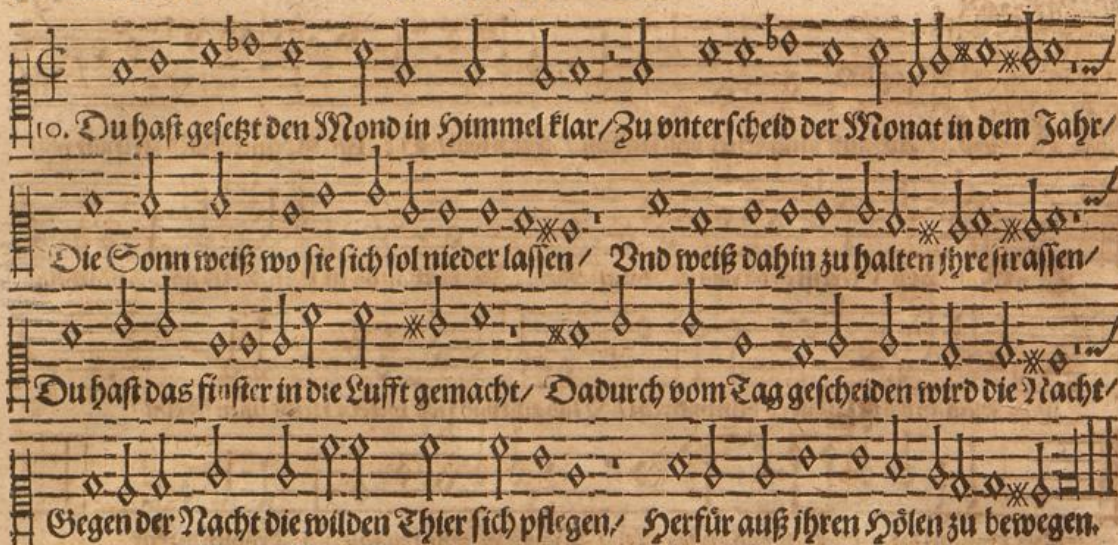 10. Du hast gesetzt den Mond in Himmel klar/ Zu vnterscheid der Monat in dem Jahr/
Die Sonn weiß wo sie sich sol nieder lassen/ Vnd weiß dahin zu halten jhre strassen/
Du hast das finster in die Lufft gemacht/ Dadurch vom Tag gescheiden wird die Nacht/
Gegen der Nacht die wilden Thier sich pflegen/ Herfür auß jhren Hölen zu bewegen.